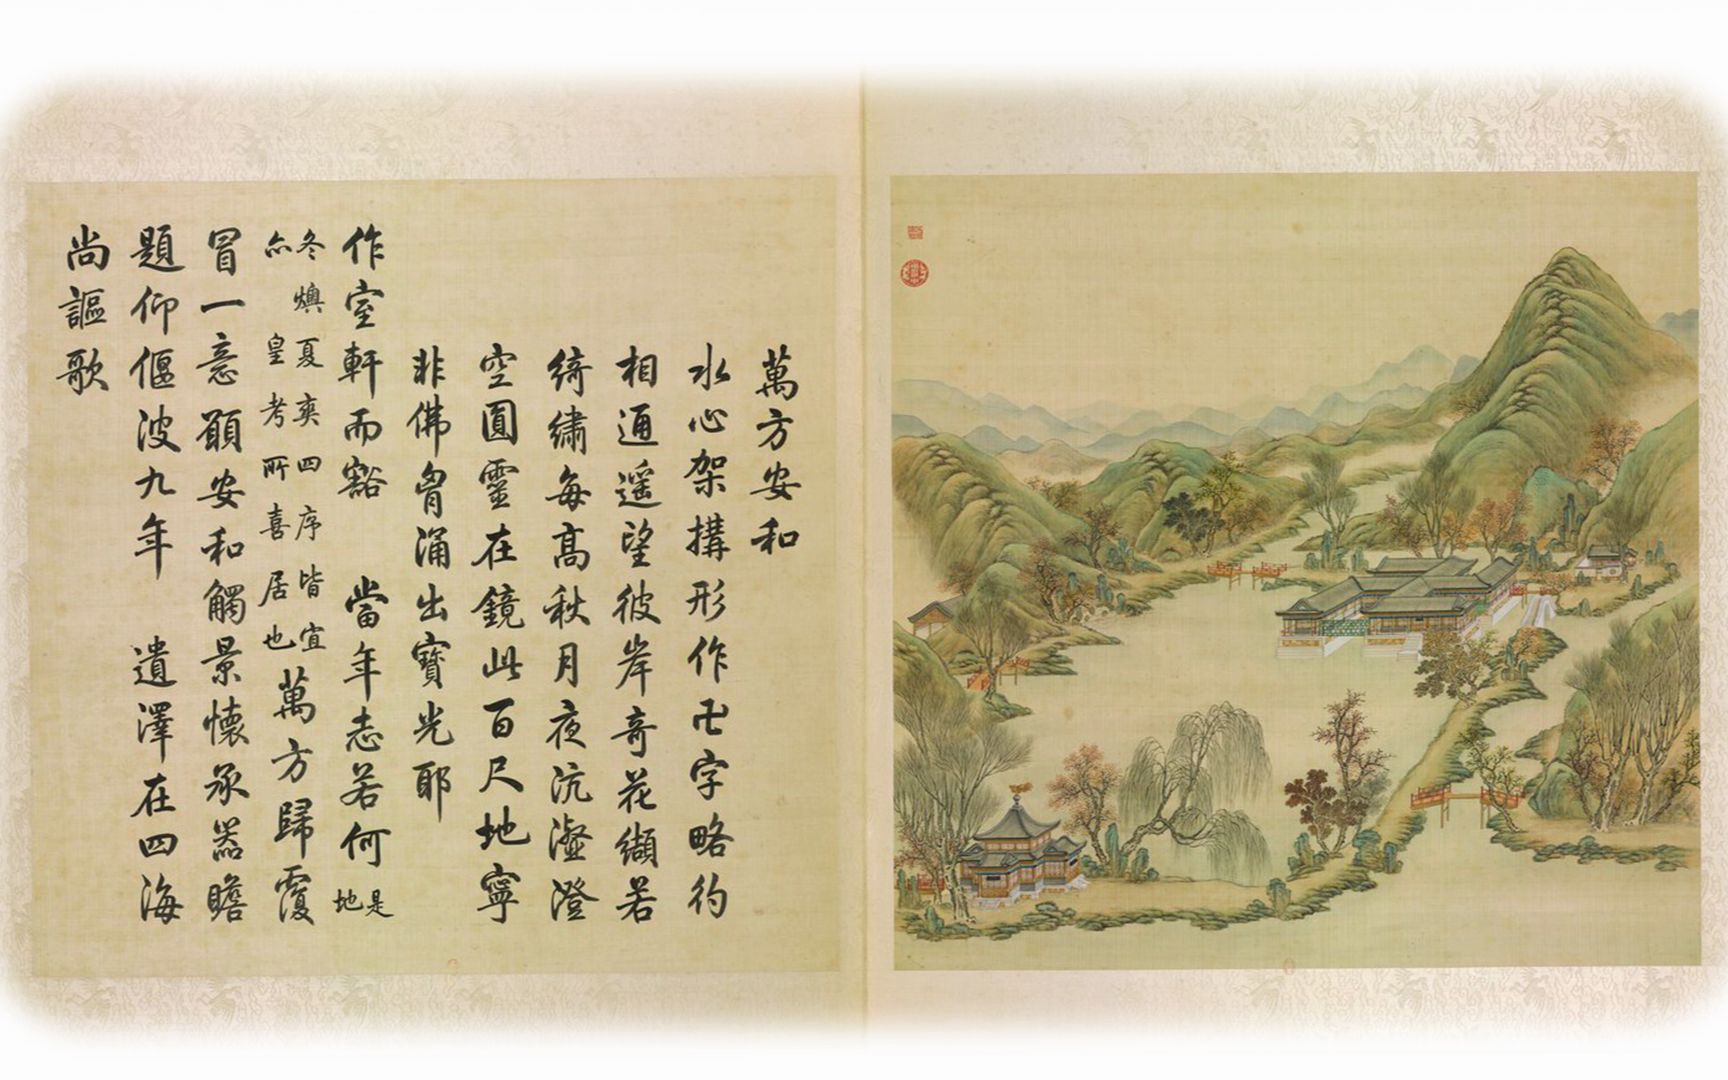 萬方安和
水心架搆形作卍字略彴
相通遥望彼岸奇花纈若
綺繡每髙秋月夜沆瀣澄
空圓靈在鏡此百尺地寧
非佛胷涌出寶光耶
作室軒而豁 當年志若何 是地
冬燠夏爽四序皆宜
亦 皇考所喜居也 萬方歸覆
冒一意願安和觸景懐承器瞻
題仰偃波九年 遺澤在四海
尚謳歌